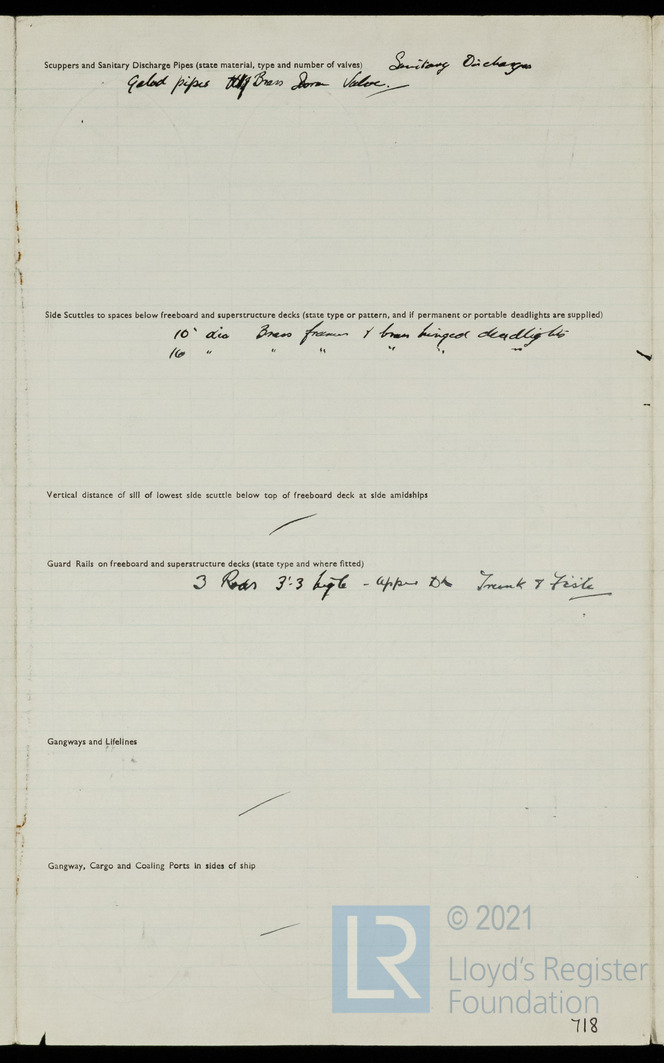 Scuppers and Sanitary Discharge Pipes (state material, type and number of valves) Sanitary Discharges
Galvd pipes Brass Storm Valve.
Side Scuttles to spaces below freeboard and superstructure decks (state type or pattern, and if permanent or portable deadlights are supplied)
10" dia Brass frames & brass hinged deadlights
16 " " " " " "
Vertical distance of sill of lowest side scuttle below top of freeboard deck at side amidships
Guard Rails on freeboard and superstructure decks (state type and where fitted)
3 Rods 3'.3 high - Upper Dk Trunk &
Gangways and Lifelines
Gangway, Cargo and Coaling Ports in sides of ship
LR
© 2021
Lloyd's Register
Foundation
718